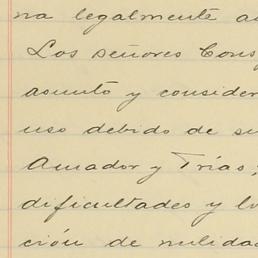 na legalmente au
Los señores Cons
asunto y consider
uso debido de su
Amador y Trías,
dificultades y lo
ción de nulidad